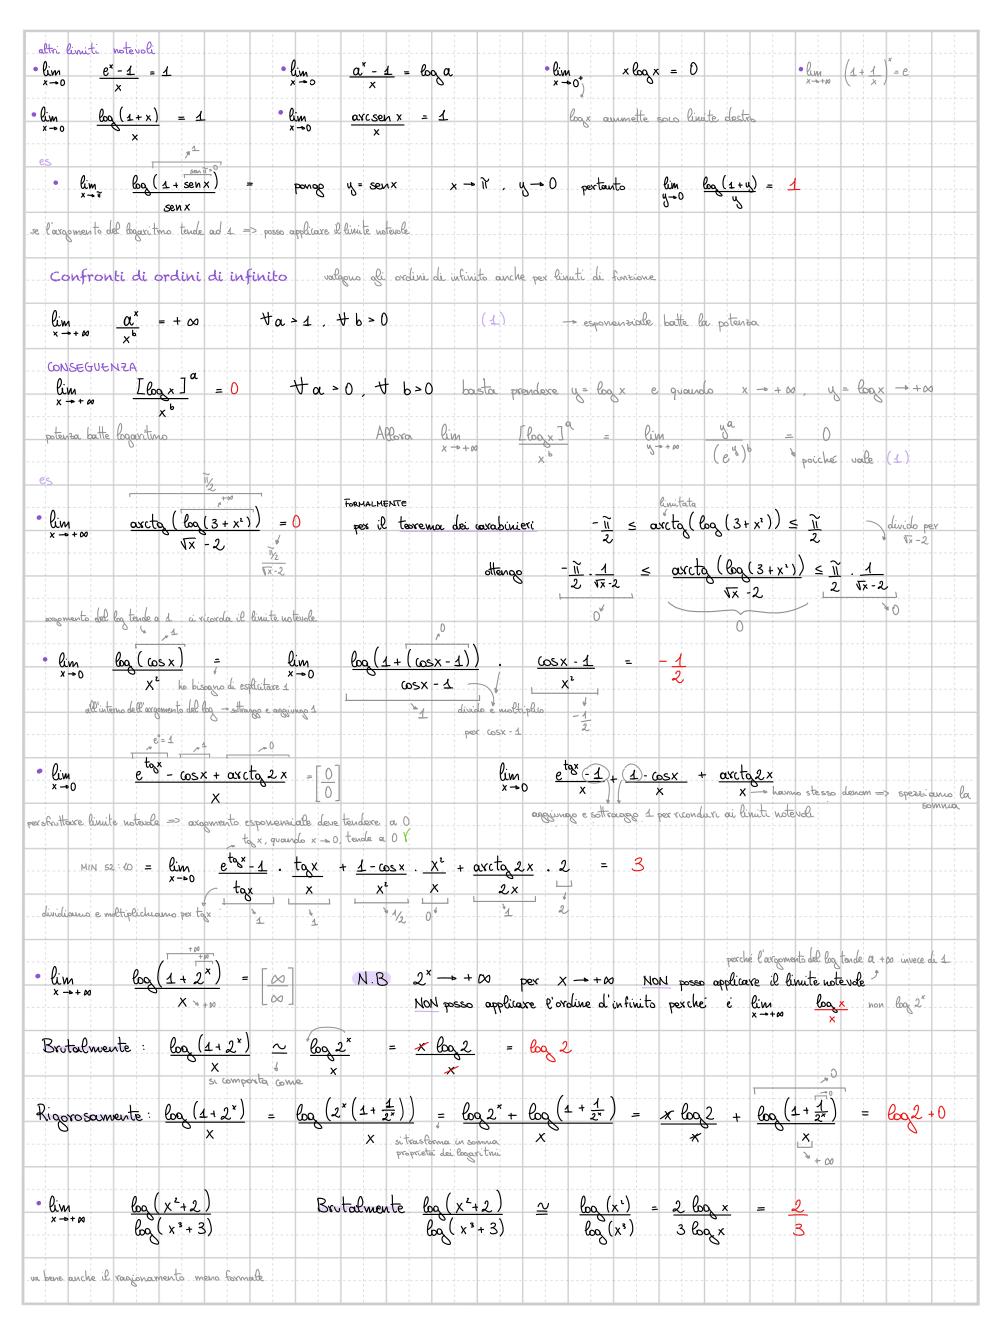 altri limiti notevoli
• lim x→0 (e^x - 1)/x = 1   • lim x→0 (a^x - 1)/x = log a   • lim x→0⁺ x log x = 0   • lim x→+∞ (1 + 1/x)^x = e
• lim x→0 log(1+x)/x = 1   • lim x→0 arcsen x/x = 1   log x ammette solo limite destro
es
→1   sen π=0
• lim x→π log(1 + sen x)/sen x =   pongo y = sen x   x → π , y → 0   pertanto   lim y→0 log(1+y)/y = 1
se l'argomento del logaritmo tende ad 1 => posso applicare il limite notevole
Confronti di ordini di infinito   valgono gli ordini di infinito anche per limiti di funzione
lim x→+∞ a^x/x^b = +∞   ∀ a > 1 , ∀ b > 0   (1)   → esponenziale batte la potenza
CONSEGUENZA
lim x→+∞ [log x]^a/x^b = 0   ∀ a > 0 , ∀ b > 0   basta prendere y = log x e quando x → +∞ , y = log x → +∞
potenza batte logaritmo   Allora   lim x→+∞ [log x]^a/x^b = lim y→+∞ y^a/(e^y)^b = 0   poiché vale (1)
es
π/2   →+∞   FORMALMENTE   limitata
• lim x→+∞ arctg(log(3+x²))/(√x - 2) = 0   per il teorema dei carabinieri   -π/2 ≤ arctg(log(3+x²)) ≤ π/2   divido per √x-2
(π/2)/(√x-2)   ottengo   -π/2 · 1/(√x-2) ≤ arctg(log(3+x²))/(√x - 2) ≤ π/2 · 1/(√x-2)
0   0   0
argomento del log tende a 1   ci ricorda il limite notevole
→1   →0
• lim x→0 log(cos x)/x² = lim x→0 log(1+(cos x - 1))/(cos x - 1) · (cos x - 1)/x² = -1/2
ho bisogno di esplicitare 1
all'interno dell'argomento del log → sottraggo e aggiungo 1   →1   divido e moltiplico   -1/2
per cos x - 1
→ e⁰=1   →1   →0
• lim x→0 (e^tgx - cos x + arctg 2x)/x = [0/0]   lim x→0 (e^tgx - 1)/x + (1 - cos x)/x + arctg 2x/x → hanno stesso denom => spezziamo la
somma
per sfruttare limite notevole => argomento esponenziale deve tendere a 0   aggiungo e sottraggo 1 per ricondurci ai limiti notevoli
tg x, quando x → 0, tende a 0 ✓
MIN 52:40 = lim x→0 (e^tgx - 1)/tg x · tg x/x + (1 - cos x)/x² · x²/x + arctg 2x/2x · 2 = 3
dividiamo e moltiplichiamo per tg x   1   1   1/2   0   1   2
+∞   +∞   perché l'argomento del log tende a +∞ invece di 1
• lim x→+∞ log(1 + 2^x)/x = [∞/∞]   N.B   2^x → +∞ per x → +∞   NON posso applicare il limite notevole
→+∞   NON posso applicare l'ordine d'infinito perché è lim x→+∞ log x/x   non log 2^x
Brutalmente : log(1+2^x)/x ≃ log 2^x/x = x log 2/x = log 2
si comporta come
→0   →0
Rigorosamente : log(1+2^x)/x = log(2^x(1 + 1/2^x))/x = (log 2^x + log(1 + 1/2^x))/x = x log 2/x + log(1 + 1/2^x)/x = log 2 + 0
si trasforma in somma
proprietà dei logaritmi   → +∞
• lim x→+∞ log(x²+2)/log(x³+3)   Brutalmente   log(x²+2)/log(x³+3) ≅ log(x²)/log(x³) = 2 log x/3 log x = 2/3
va bene anche il ragionamento meno formale